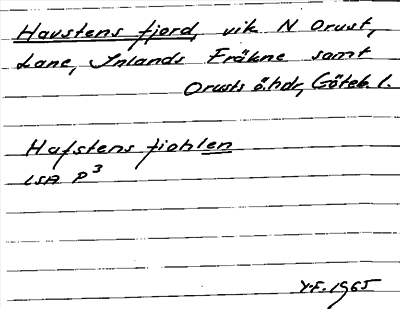 Havstens fjord, vik N Orust,
Lane, Inlands Fräkne samt
Orusts ö.hdr, Göteb. l.
Hafstens fiohlen
LSA P3
V.F. 1965